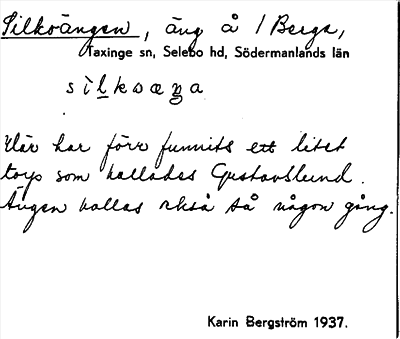 Silkoängen, äng å / Berga,
Taxinge sn, Selebo hd, Södermanlands län
silksæŋa
Här har förr funnits ett litet
torp som kallades Gustavslund.
Ängen kallas också så någon gång.
Karin Bergström 1937.